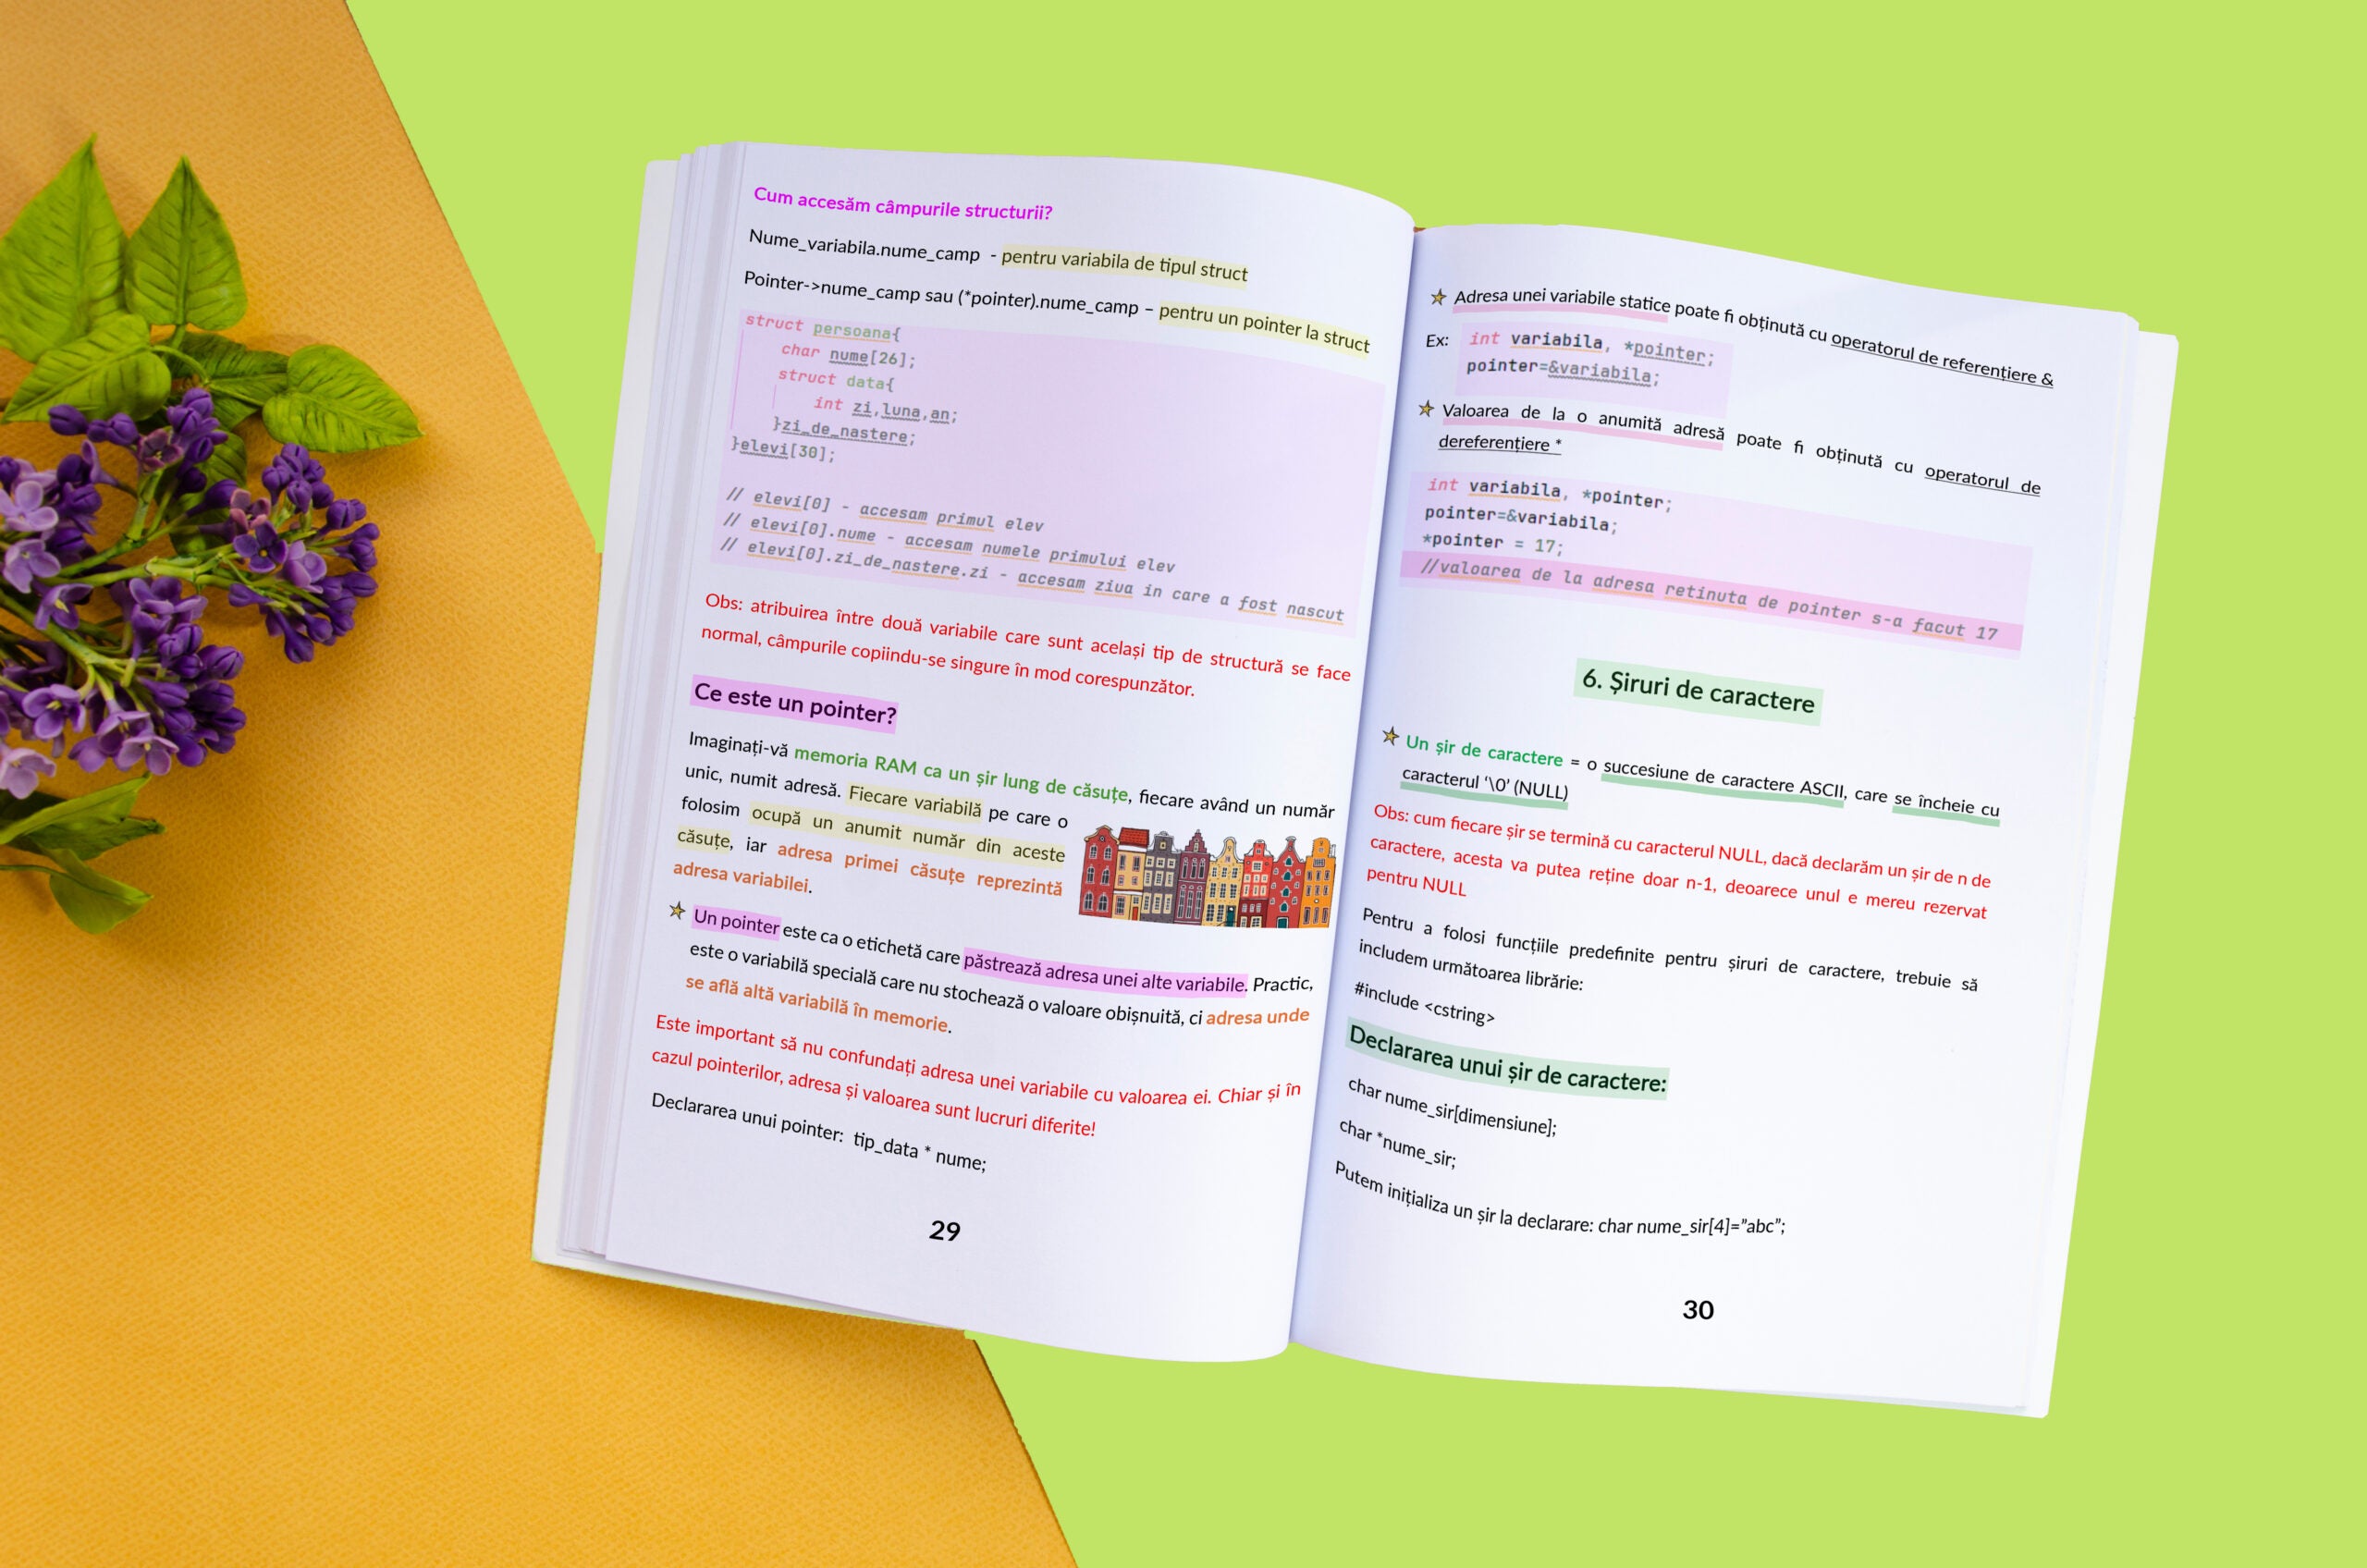 Cum accesăm câmpurile structurii?
Nume_variabila.nume_camp - pentru variabila de tipul struct
Pointer->nume_camp sau (*pointer).nume_camp – pentru un pointer la struct
struct persoana{
char nume[26];
struct data{
int zi,luna,an;
}zi_de_nastere;
}elevi[30];
// elevi[0] - accesam primul elev
// elevi[0].nume - accesam numele primului elev
// elevi[0].zi_de_nastere.zi - accesam ziua in care a fost nascut
Obs: atribuirea între două variabile care sunt același tip de structură se face
normal, câmpurile copiindu-se singure în mod corespunzător.
Ce este un pointer?
Imaginați-vă memoria RAM ca un șir lung de căsuțe, fiecare având un număr
unic, numit adresă. Fiecare variabilă pe care o
folosim ocupă un anumit număr din aceste
căsuțe, iar adresa primei căsuțe reprezintă
adresa variabilei.
Un pointer este ca o etichetă care păstrează adresa unei alte variabile. Practic,
este o variabilă specială care nu stochează o valoare obișnuită, ci adresa unde
se află altă variabilă în memorie.
Este important să nu confundați adresa unei variabile cu valoarea ei. Chiar și în
cazul pointerilor, adresa și valoarea sunt lucruri diferite!
Declararea unui pointer: tip_data * nume;
29
Adresa unei variabile statice poate fi obținută cu operatorul de referențiere &
Ex: int variabila, *pointer;
pointer=&variabila;
Valoarea de la o anumită adresă poate fi obținută cu operatorul de
dereferențiere *
int variabila, *pointer;
pointer=&variabila;
*pointer = 17;
//valoarea de la adresa retinuta de pointer s-a facut 17
6. Șiruri de caractere
Un șir de caractere = o succesiune de caractere ASCII, care se încheie cu
caracterul ‘\0’ (NULL)
Obs: cum fiecare șir se termină cu caracterul NULL, dacă declarăm un șir de n de
caractere, acesta va putea reține doar n-1, deoarece unul e mereu rezervat
pentru NULL
Pentru a folosi funcțiile predefinite pentru șiruri de caractere, trebuie să
includem următoarea librărie:
#include <cstring>
Declararea unui șir de caractere:
char nume_sir[dimensiune];
char *nume_sir;
Putem inițializa un șir la declarare: char nume_sir[4]=”abc”;
30